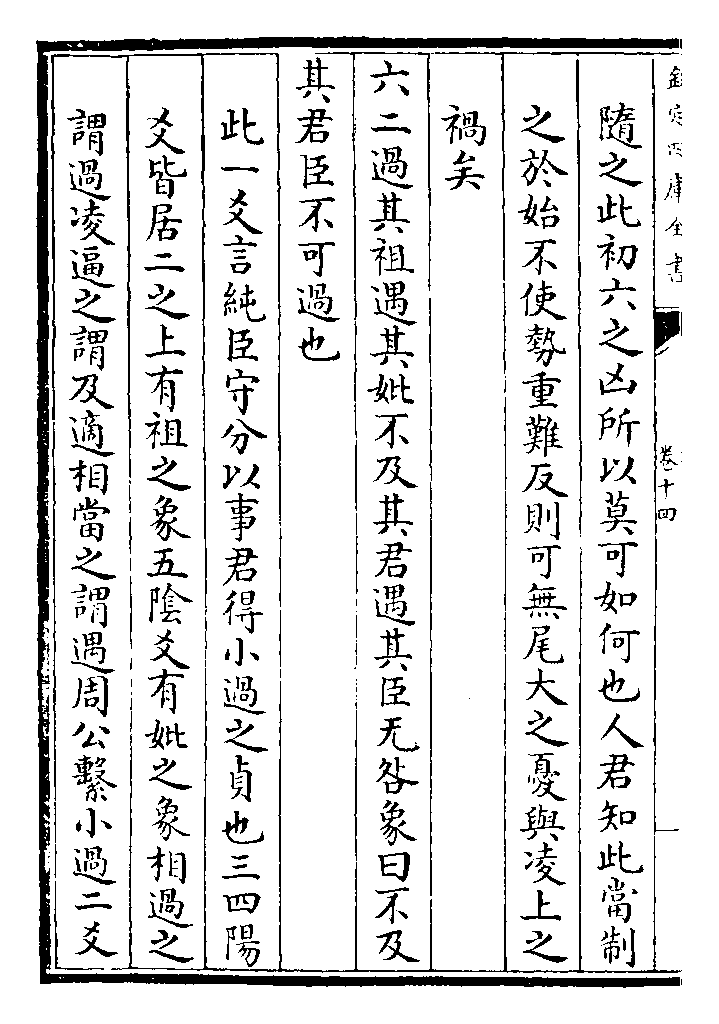 欽定四庫全書
卷十四
隨之此初六之凶所以莫可如何也人君知此當制
之於始不使勢重難反則可無尾大之憂與凌上之
禍矣
六二過其祖遇其妣不及其君遇其臣无咎象曰不及
其君臣不可過也
此一爻言純臣守分以事君得小過之貞也三四陽
爻皆居二之上有祖之象五陰爻有妣之象相過之
謂過凌逼之謂及適相當之謂遇周公繫小過二爻